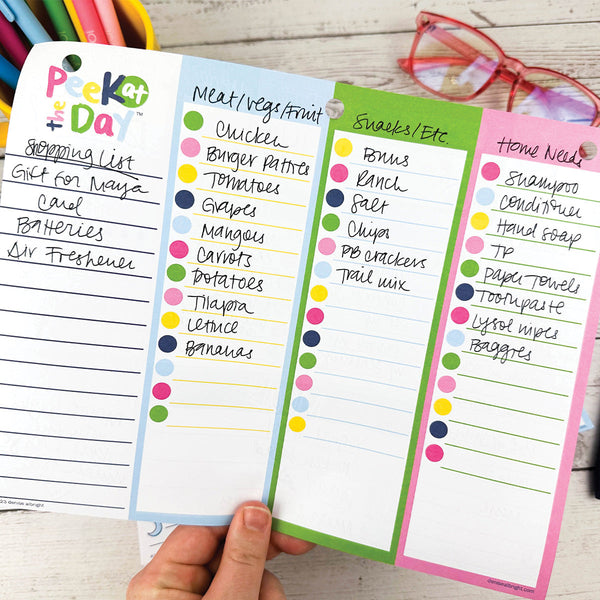 Peek at
the Day™
Shopping List
Gift for Maya
Card
Batteries
Air Freshener
Meat/Vegs/Fruit
Chicken
Burger Patties
Tomatoes
Grapes
Mangoes
Carrots
Potatoes
Tilapia
Lettuce
Bananas
Snacks/Etc.
Buns
Ranch
Salt
Chips
PB crackers
Trail mix
Home Needs
Shampoo
Conditioner
Hand soap
TP
Paper Towels
Toothpaste
Lysol wipes
Baggies
denise albright
denisealbright.com